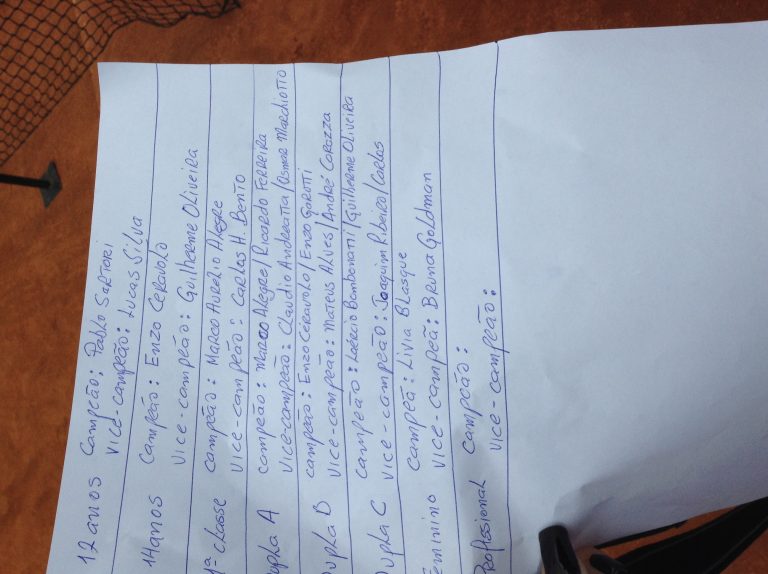 12 anos Campeão: Pablo Sartori
Vice-campeão: Lucas Silva
14 anos Campeão: Enzo Ceravolo
Vice-campeão: Guilherme Oliveira
1ª classe campeão: Marco Aurelio Alegre
Vice-campeão: Carlos H. Bento
Dupla A campeão: Marco Alegre/Ricardo Ferreira
Vice-campeão: Claudio Andreatta/Osmar Marchiotto
Dupla B campeão: Enzo Ceravolo/Enzo Garotti
Vice-campeão: Mateus Alves/André Corazza
Dupla C campeão: Laércio Bambonati/Guilherme Oliveira
Vice-campeão: Joaquim Ribeiro/Carlos
Feminino Campeã: Livia Blasque
Vice-campeã: Bruna Goldman
Profissional Campeão:
Vice-campeão: